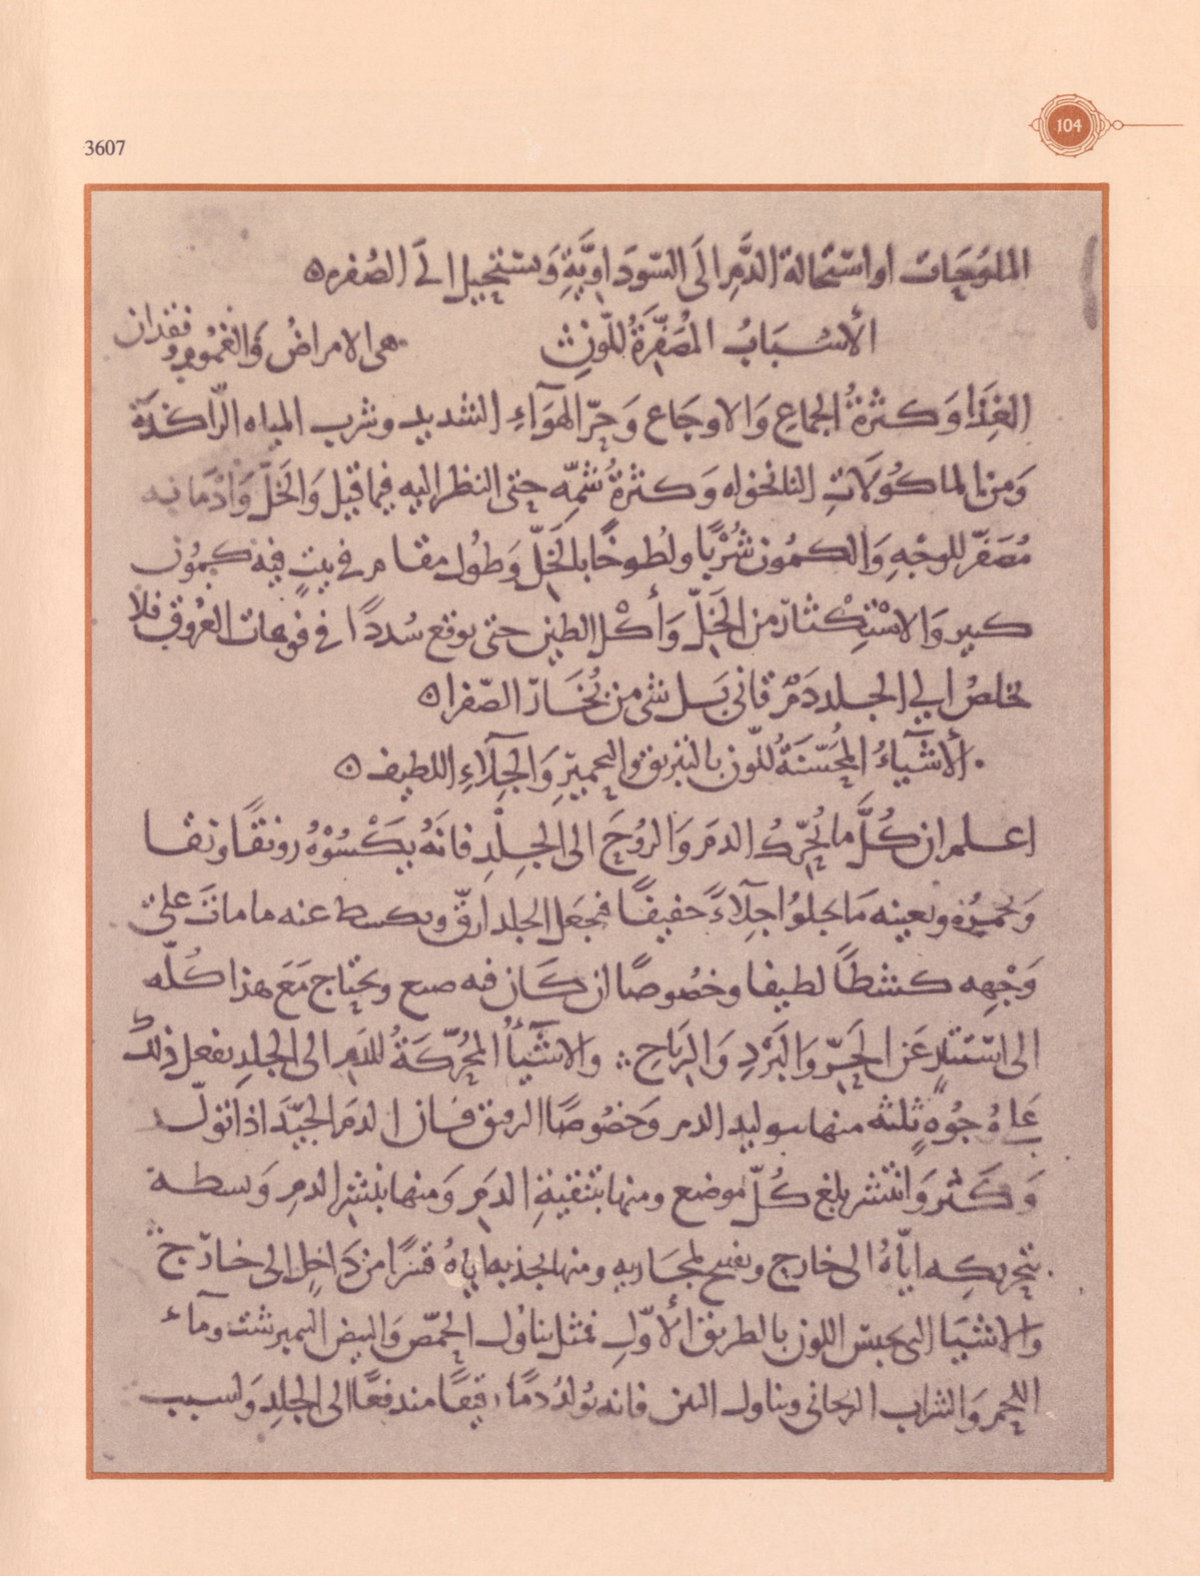 104
3607
الملوحَات او استحالة الدَّمِ الَى السّودَاويَّةِ وَيستحيل الَى الصُفره
الأسْبَابُ المُصَفِّرَةُ لِلّونِ هى الامراضُ وَالغمُومِ وفقدان
الغِذَا وَكثرةُ الجماعِ وَالاوجَاع وَحرّ الهوَآءِ الشديد وشرب المياه الرّاكدَة
وَمن الماكُولَاتِ النانخواه وَكثرةُ شمِّه حتى النظر اليه فيما قيل وَالخَلّ وَادمَانه
مُصَفّر للوجْهِ وَالكمُون شُرْبًا ولُطُوخًا بالخَلّ وَطُول مقام فى بيتٍ فيه كمُون
كبير وَالاسْتِكْثار من الخَلّ وَأكْل الطين حتى يوقع سُددًا فى فوهات العُروق فلا
يخلصُ الي الجلد دَمٌ قانى بَل شى من بُخَار الصّفراه
الأشيَاءُ المُحَسّنَةُ للّون بالتبريق والتحميرِ وَالجِلَآءِ اللطيف ه
اعلم ان كُلَّ ما يُحَرّك الدمَ وَالروُحَ الى الجِلْدِ فانَهُ يَكْسُوْهُ رونقًا ونقا
وَتحميرة ويعينه مَا يجلوُا جِلَآءً خفيفًا فيجعَل الجلد ارقّ ويكسط عنه ما ماتَ على
وَجْهِه كشطًا لطيفا وخصُوصًا ان كَان فيه صبع ويحتاج مَعَ هذا كُلّه
الى استتارٍ عَن الحَرّ وَالبَرْدِ وَالرِيَاحِ والاشيَآءُ المُحَرّكَةُ للدَم الى الجلدِ تفعل ذلك
عَلى وُجُوهٍ ثلثه منها بتوليد الدم وَخصُوصًا الرقيق فَان الدمَ الجيّدَ اذا تولّد
وَكَثر وَانتشر بلغ كُلّ موضع ومنها بتنقيةِ الدَمِ وَمنها بنشر الدمِ وَبسطه
بتحريكِه ايّاهُ الى خارج وتفتيح لمجَاريه ومنها بجذبه اياهُ قسرًا من دَاخِل الى خارَج
وَالاشيَا التى تحسّن اللون بالطريق الأوّلِ فمثل تناوُل الحُمّص وَالبيض النيمبرشت ومآء
اللحم وَالشراب الريحانى وتناول التين فانه يُولدُ دمًا رقيقًا مندفعًا الى الجلدِ وَلسبب